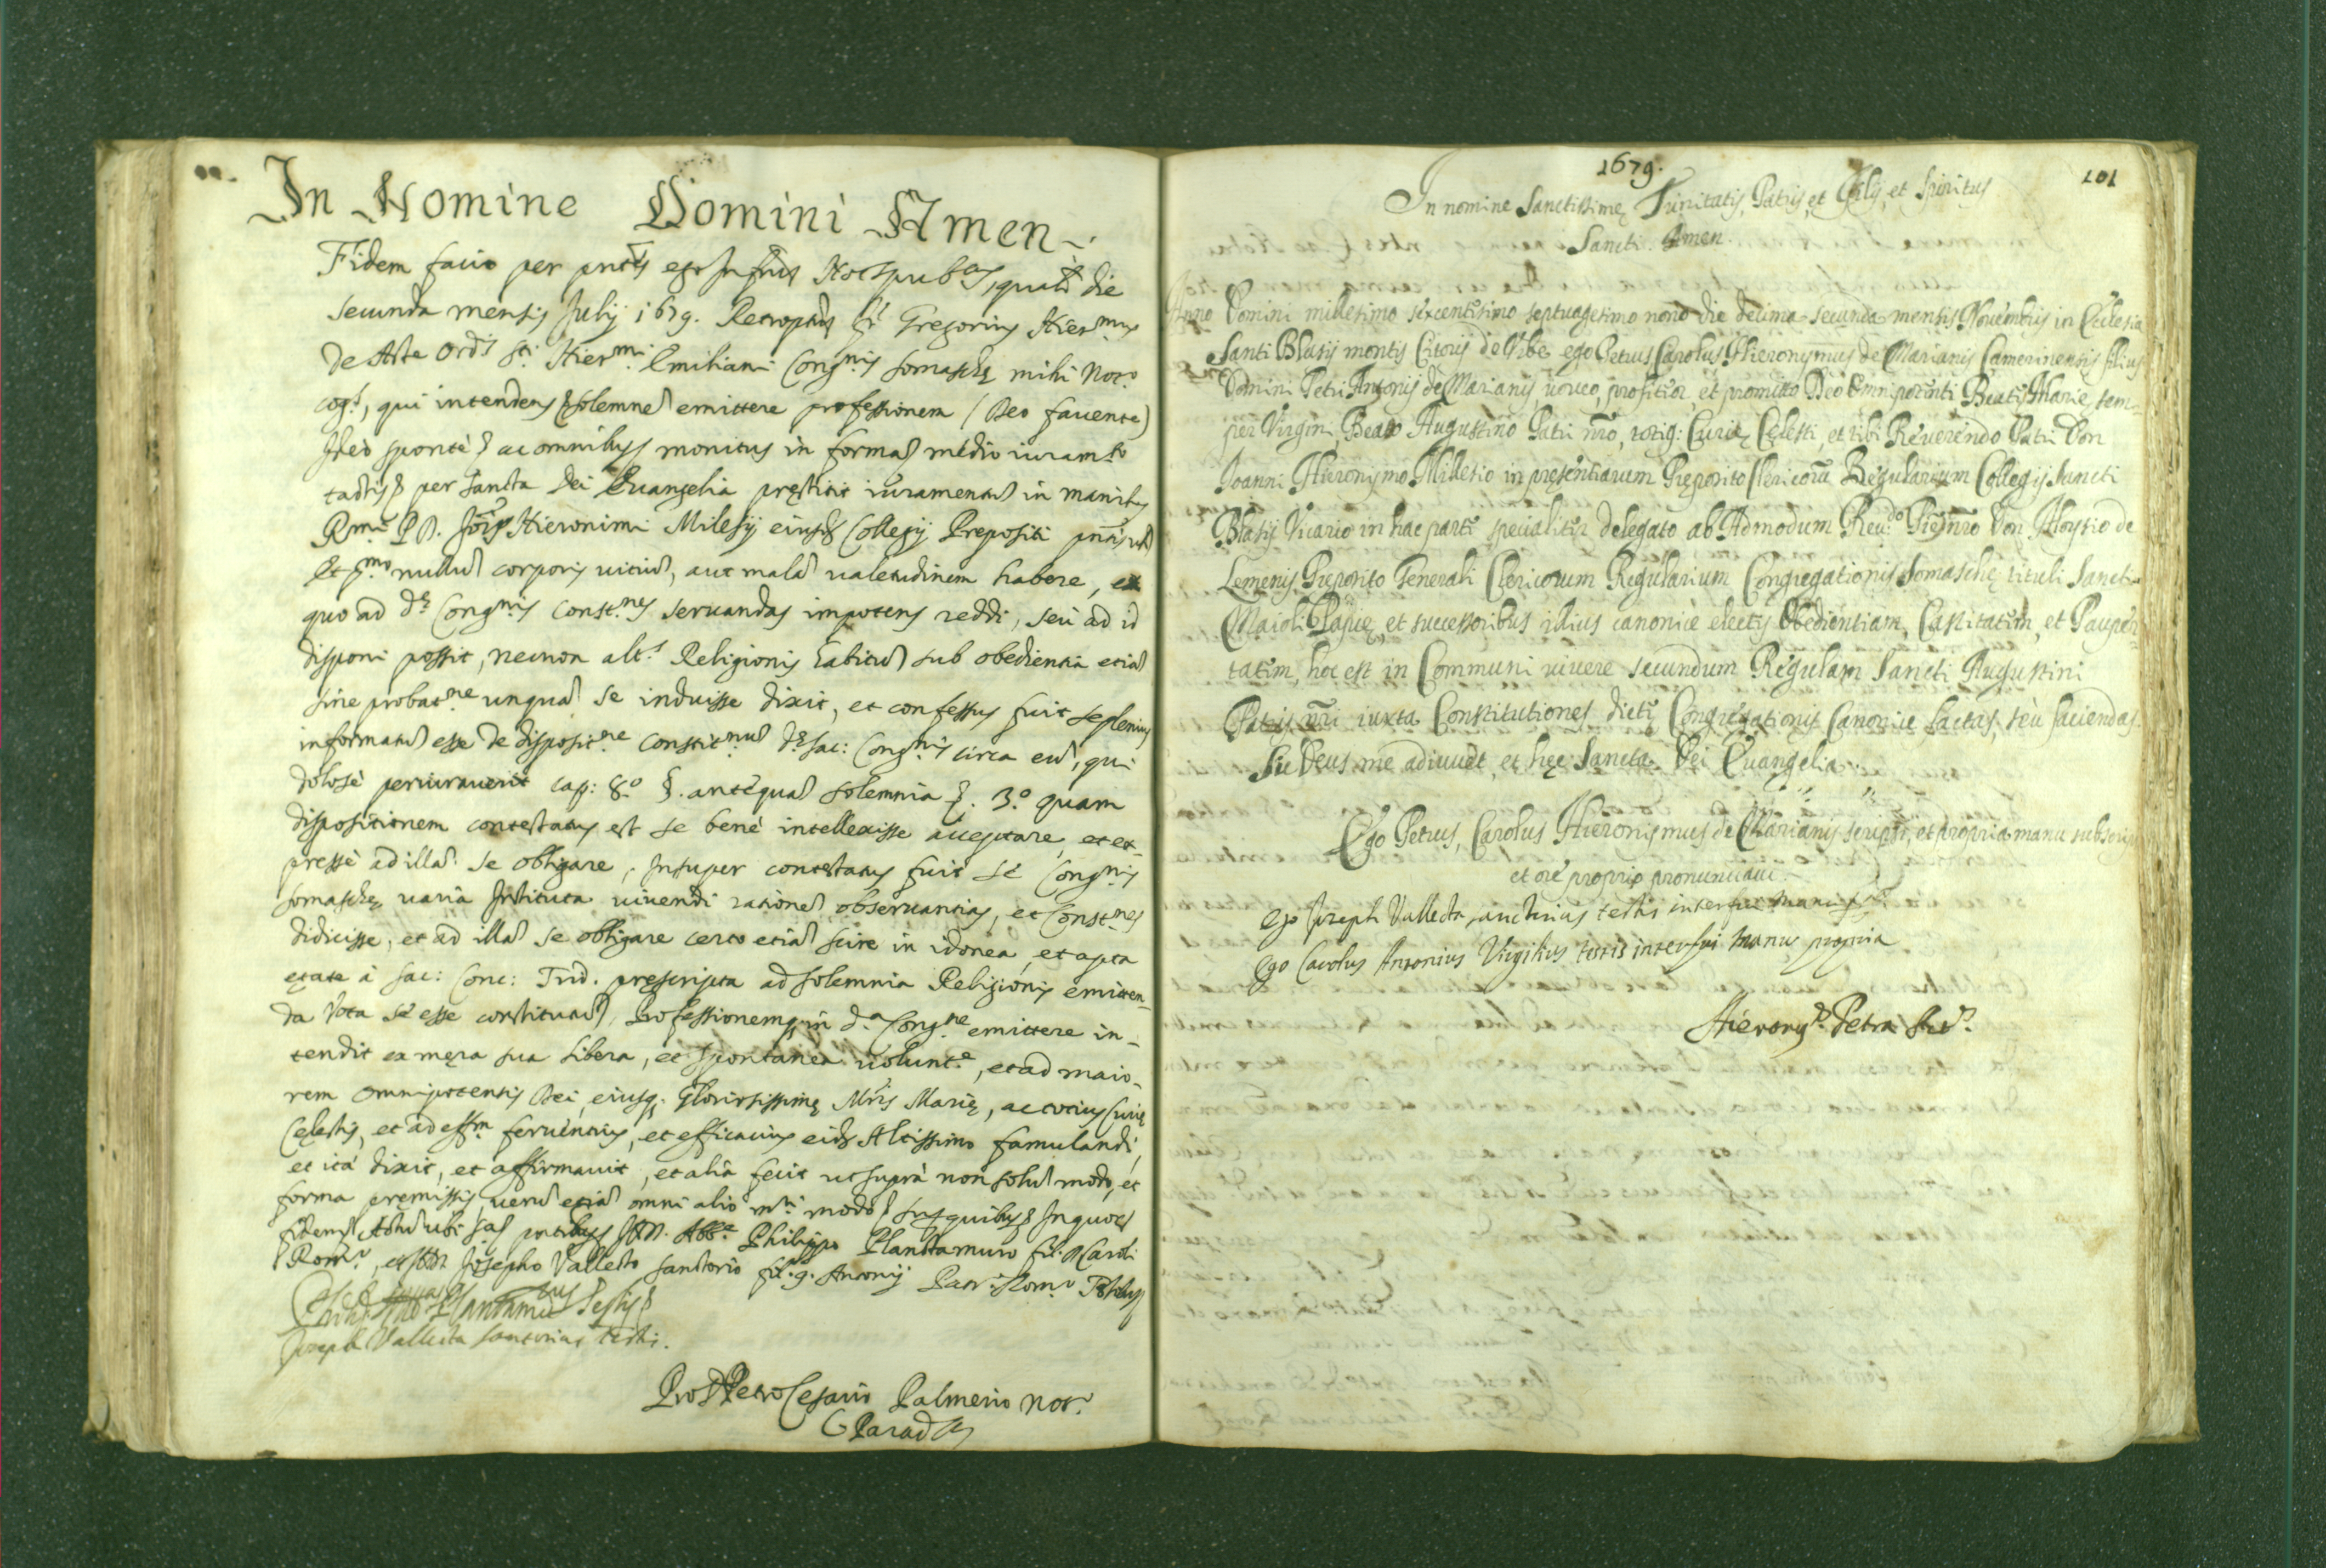 In Nomine Domini Amen
Fidem facio per pntes ego infrus Not pubcus, qualr die
secunda mensis Julij 1679. Retroptus fr Gregorius Hiermus
de Aste Ordis Sti Hiermi Emiliani Congnis Somaschę mihi Noto
cogs, qui intendens solemnē emittere professionem (Deo fauente)
Ideò spontè ac omnibus monitus in forma medio iuramto
tactis per sancta Dei Euangelia pręstitit iuramentū in manibus
Rmi P. D. Jois Hieronimi Milesij eiusd Collegij Prepositi
nullū corporis uitiū, aut malā ualetudinem habere, ex
quo ad de Congnis Constnes seruandas impotens reddi, seù ad id
disponi possit, necnon alts Religionis habitū sub obedientia etiā
sine probatne unquā se induisse dixit, et confessus fuit se plenius
informatū esse de dispositne constitnum de sac: Congnis circa eū, qui
dolosè periurauerit cap: 8.o §. antequā solemnia §. 3.o quam
dispositionem contestatus est se benè intellexisse acceptare, et ex-
pressè ad illā se obligare, Insuper contestatus fuit se Congnis
somaschę uaria Instituta uiuendi rationē obseruantias, et Constnes
didicisse, et ad illā se obligare certo etiā scire in idonea, et apta
ętate à sac: Conc: Trid. pręscripta ad solemnia Religionis emitten-
da Vota se esse constitutū, Professionemq; in da Congne emittere in-
tendit ex męra sua libera, et spontanea uolunte, et ad maio-
rem omnipotentis Dei, eiusq; Gloriosissimę Mris Marię, ac totius Curię
Cęlestis, et ad effm feruentius, et efficacius eidē Altissimo famulandi,
et ità dixit, et affirmauit, et alia fecit ut suprà non solū modo, et
forma pręmissis, uerū etiā omni alio mri modo sup quibus In quorū
fidem Actū ubi sa pntibus DD. Abbe Philippo Plantamuro fil: Caroli
Romo, et Josepho Vallecto sanctorio fil: q. Antonij Patr: Romo Testibus
Plantamurus Testis
Joseph Vallecta Santorius testis.
Pro D Petro Cesario Palmerio not.
G Parad
1679.
101
In nomine Sanctissimę Trinitatis, Patris, et Filij, et Spiritus
Sancti. Amen.
Anno Domini millesimo sexcentesimo septuagesimo nono die decima secunda mensis Nouembris in Ecclesia
Santi Blasij montis Citorij de Vrbe ego Petrus Carolus Hieronymus de Marianis Camerinensis filius
Domini Petri Antonij de Marianis uoueo, profiteor, et promitto Deo Omnipotenti Beatę Marię sem-
per Virgini, Beato Augustino Patri nro, totiq; Curię Cęlesti, et tibi Reuerendo Patri Don
Ioanni Hieronymo Millesio in pręsentiarum Preposito Clericorū Regularium Collegij Sancti
Blasij Vicario in hac parte specialiter delegato ab Admodum Reudo Pre nro Don Aloysio de
Lemenis Preposito Generali Clericorum Regularium Congregationis Somaschę tituli Sancti
Maioli Papię, et successoribus illius canonicè electis Obedientiam, Castitatem, et Pauper-
tatem, hoc est in Communi uiuere secundum Regulam Sancti Augustini
Patris nri iuxta Constitutiones dictę Congregationis Canonice factas, seù faciendas.
Sic Deus me adiuuet, et hęc Sancta Dei Euangelia.
Ego Petrus, Carolus Hieronymus de Marianis scripsi, et propria manu subscripsi
et ore proprio pronunciaui.
Ego Joseph Vallecta sanctorius testis interfui manu ppa
Ego Carolus Antonius Virgilius testis interfui manu propria
Hierony Petra